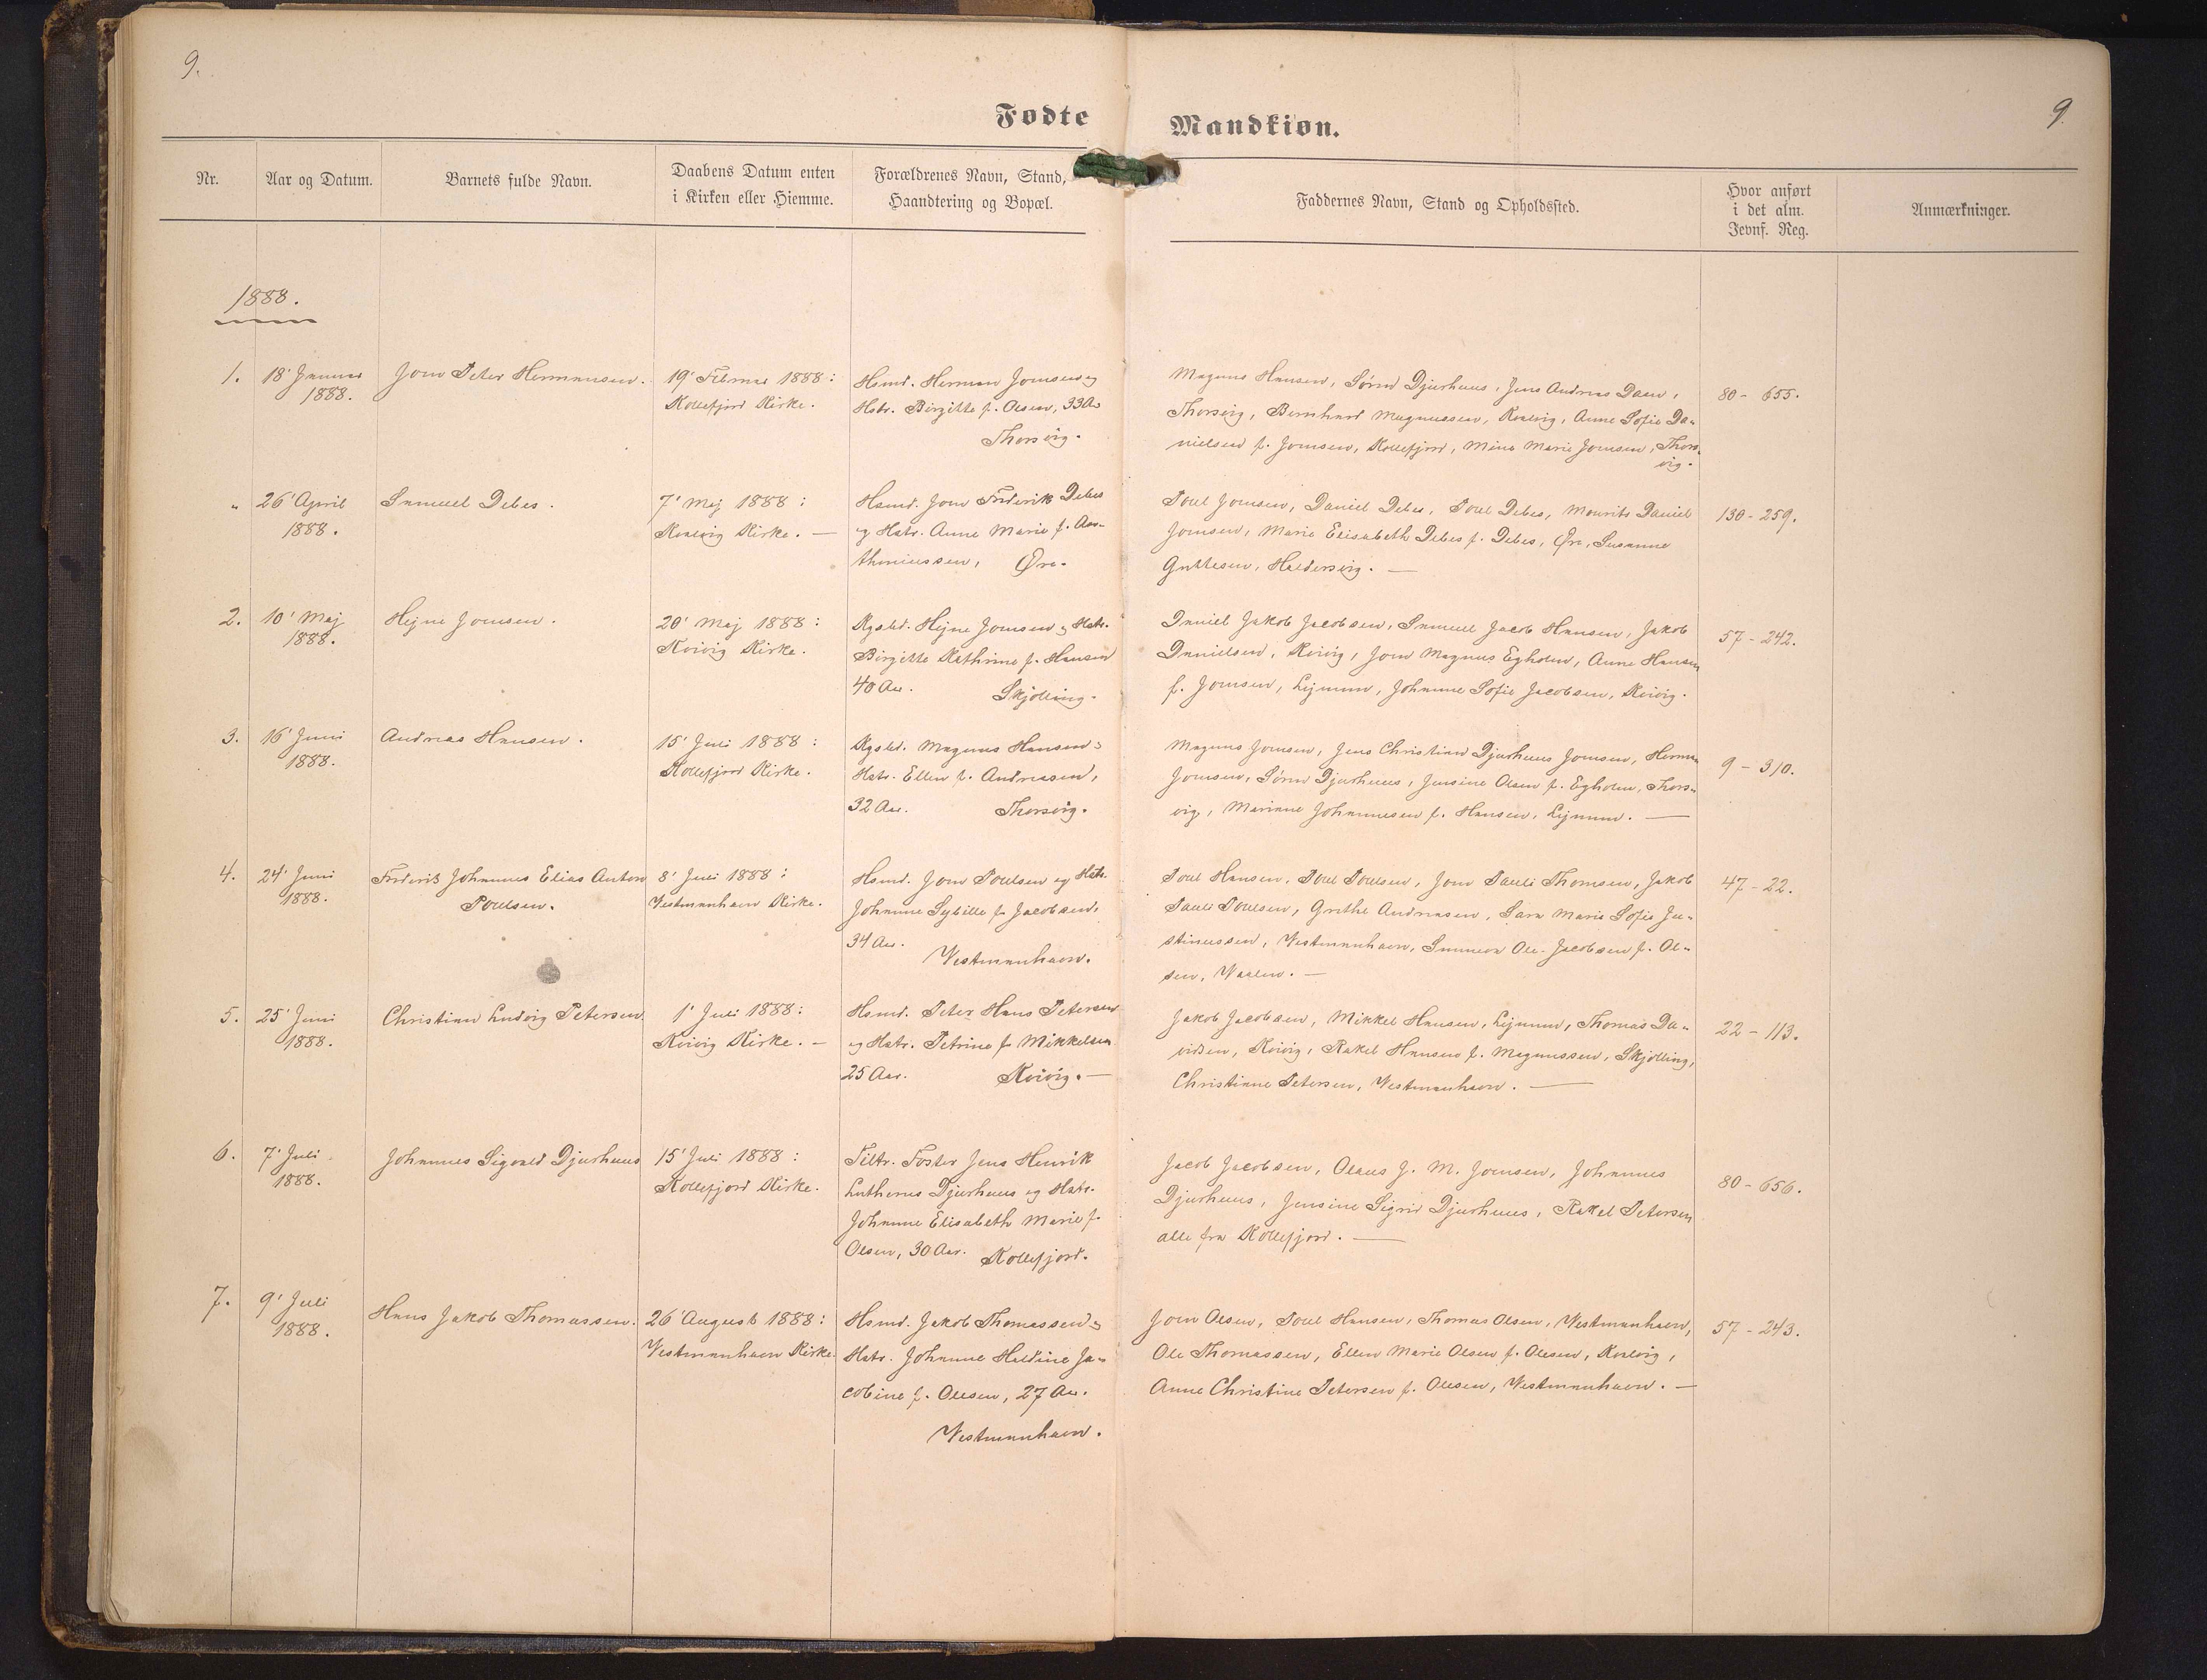 9.
9.
Fødte Mandkiøn.
Nr.
Aar og Datum.
Barnets fulde Navn.
Daabens Datum enten
i Kirken eller Hiemme.
Forældrenes Navn, Stand,
Haandtering og Bopæl.
Faddernes Navn, Stand og Opholdssted.
Hvor anført
i det alm.
Jevnf. Reg.
Anmærkninger.
1888.
1.
18' Januar
1888.
Jom Peter Hermansen.
19' Februar 1888:
Kollefjord Kirke.
Hsmd. Herman Jomsen og
Hstr. Birgitte f. Olsen, 33 Aar
Thorsvig.
Magnus Hansen, Sören Djurhuus, Jens Andreas Dam,
Thorsvig, Bernhard Magnussen, Kvalvig, Anne Sofie Da-
nielsen f. Jomsen, Kollefjord, Mine Marie Jomsen, Thors-
vig.
80 - 655.
"
26' April
1888.
Samuel Debes.
7' Maj 1888:
Kvalvig Kirke. —
Hsmd. Jom Frederik Debes
og Hstr. Anne Marie f. An-
thoniussen, Øre.
Poul Jomsen, Daniel Debes, Poul Debes, Mourits Daniel
Jomsen, Marie Elisabeth Debes f. Debes, Øre, Susanne
Guttesen, Haldersvig. —
130 - 259.
2.
10' Maj
1888.
Hejne Jomsen.
20' Maj 1888:
Kvivig Kirke.
Kgsbd. Hejne Jomsen og Hstr.
Birgitte Kathrine f. Hansen
40 Aar. Skjelling.
Daniel Jakob Jacobsen, Samuel Jacob Hansen, Jakob
Danielsen, Kvivig, Jom Magnus Egholm, Anne Hansen
f. Jomsen, Lejnum, Johanne Sofie Jacobsen, Kvivig.
57 - 242.
3.
16' Juni
1888.
Andreas Hansen.
15' Juli 1888:
Kollefjord Kirke.
Kgsbd. Magnus Hansen og
Hstr. Ellen f. Andreasen,
32 Aar. Thorsvig.
Magnus Jomsen, Jens Christian Djurhuus Jomsen, Herman
Jomsen, Sören Djurhuus, Jensine Olsen f. Egholm, Thors-
vig, Marianne Johannesen f. Hansen, Lejnum. —
9 - 310.
4.
24' Juni
1888.
Frederik Johannes Elias Anton
Poulsen.
8' Juli 1888:
Vestmanhavn Kirke.
Hsmd. Jom Poulsen og Hstr.
Johanne Sybille f. Jacobsen,
34 Aar.
Vestmanhavn.
Poul Hansen, Poul Poulsen, Jom Pauli Thomsen, Jakob
Pauli Poulsen, Grethe Andreasen, Sara Marie Sofie Ju-
stinussen, Vestmanhavn, Sunneva Ole-Jacobsen f. Ol-
sen, Vaalen. —
47 - 22.
5.
25' Juni
1888.
Christian Ludvig Petersen
1' Juli 1888:
Kvivig Kirke. —
Hsmd. Peter Hans Petersen
og Hstr. Petrine f. Mikkelsen
25 Aar. Kvivig. —
Jakob Jacobsen, Mikkel Hansen, Lejnum, Thomas Da-
vidsen, Kvivig, Rakel Hansen f. Magnussen, Skjelling,
Christiane Petersen, Vestmanhavn. —
22 - 113.
6.
7' Juli
1888.
Johannes Sigvald Djurhuus
15' Juli 1888:
Kollefjord Kirke.
Jens Henrik
Lutherus Djurhuus og Hstr.
Johanne Elisabeth Marie f.
Olsen, 30 Aar. Kollefjord.
Jacob Jacobsen, Olaus J. M. Jomsen, Johannes
Djurhuus, Jensine Sigrid Djurhuus, Rakel Petersen
alle fra Kollefjord. —
80 - 656.
7.
9' Juli
1888.
Hans Jakob Thomassen.
26' August 1888:
Vestmanhavn Kirke.
Hsmd. Jakob Thomassen og
Hstr. Johanne Haldine Ja-
cobine f. Olesen, 27 Aar.
Vestmanhavn.
Jom Olsen, Poul Hansen, Thomas Olsen, Vestmanhavn,
Ole Thomassen, Ellen Marie Olsen f. Olesen, Kvalvig,
Anne Christine Petersen f. Olesen, Vestmanhavn. —
57 - 243.